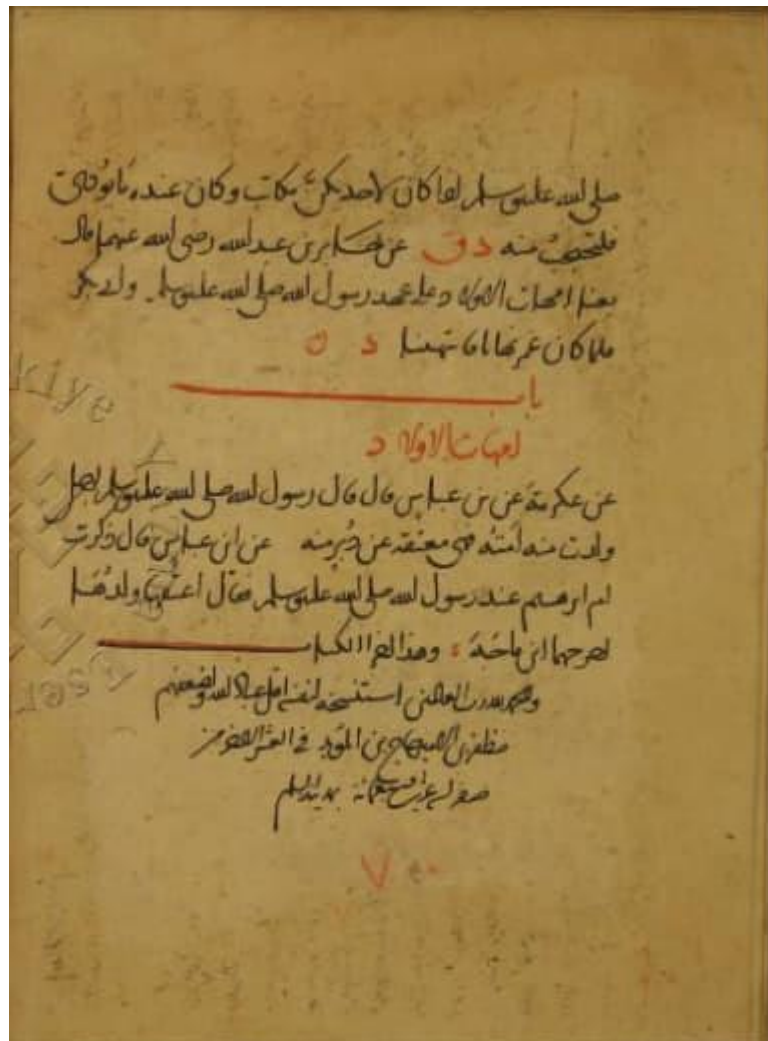 صلى الله عليه وسلم اذا كان لاحدكن مكاتب وكان عنده ما يودى
فلتحتجب منه د ق عن جابر بن عبد الله رضى الله عنهما قال
بعنا امهات الاولاد على عهد رسول الله صلى الله عليه وسلم وابى بكر
فلما كان عمر نهانا فانتهينا د ق
باب
امهات الاولاد
عن عكرمة عن بن عباس قال قال رسول الله صلى الله عليه وسلم رجل
ولدت منه امته فهى معتقة عن دبر منه عن ابن عباس قال ذكرت
ام ابرهيم عند رسول الله صلى الله عليه وسلم فقال اعتقها ولدها
اخرجهما ابن ماجة وهذا اخر الكتاب
والحمد لله رب العالمين استنسخه لنفسه اقل عباد الله واضعفهم
مظفر بن بن فى العشر من
صفر
٧